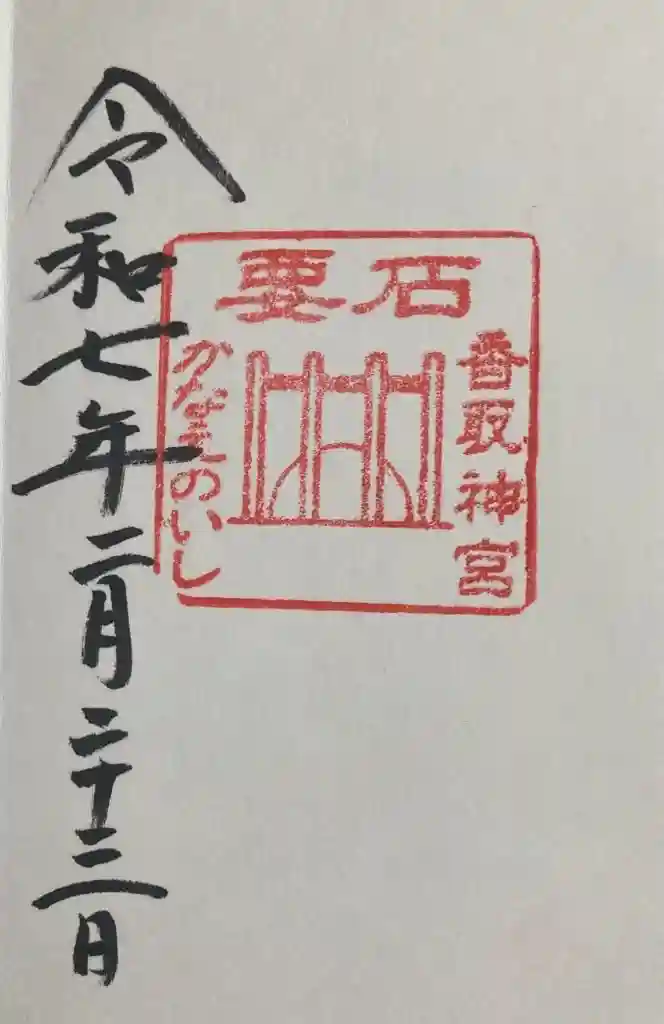 要石
香取神宮
かなめのいし
令和七年二月二十三日